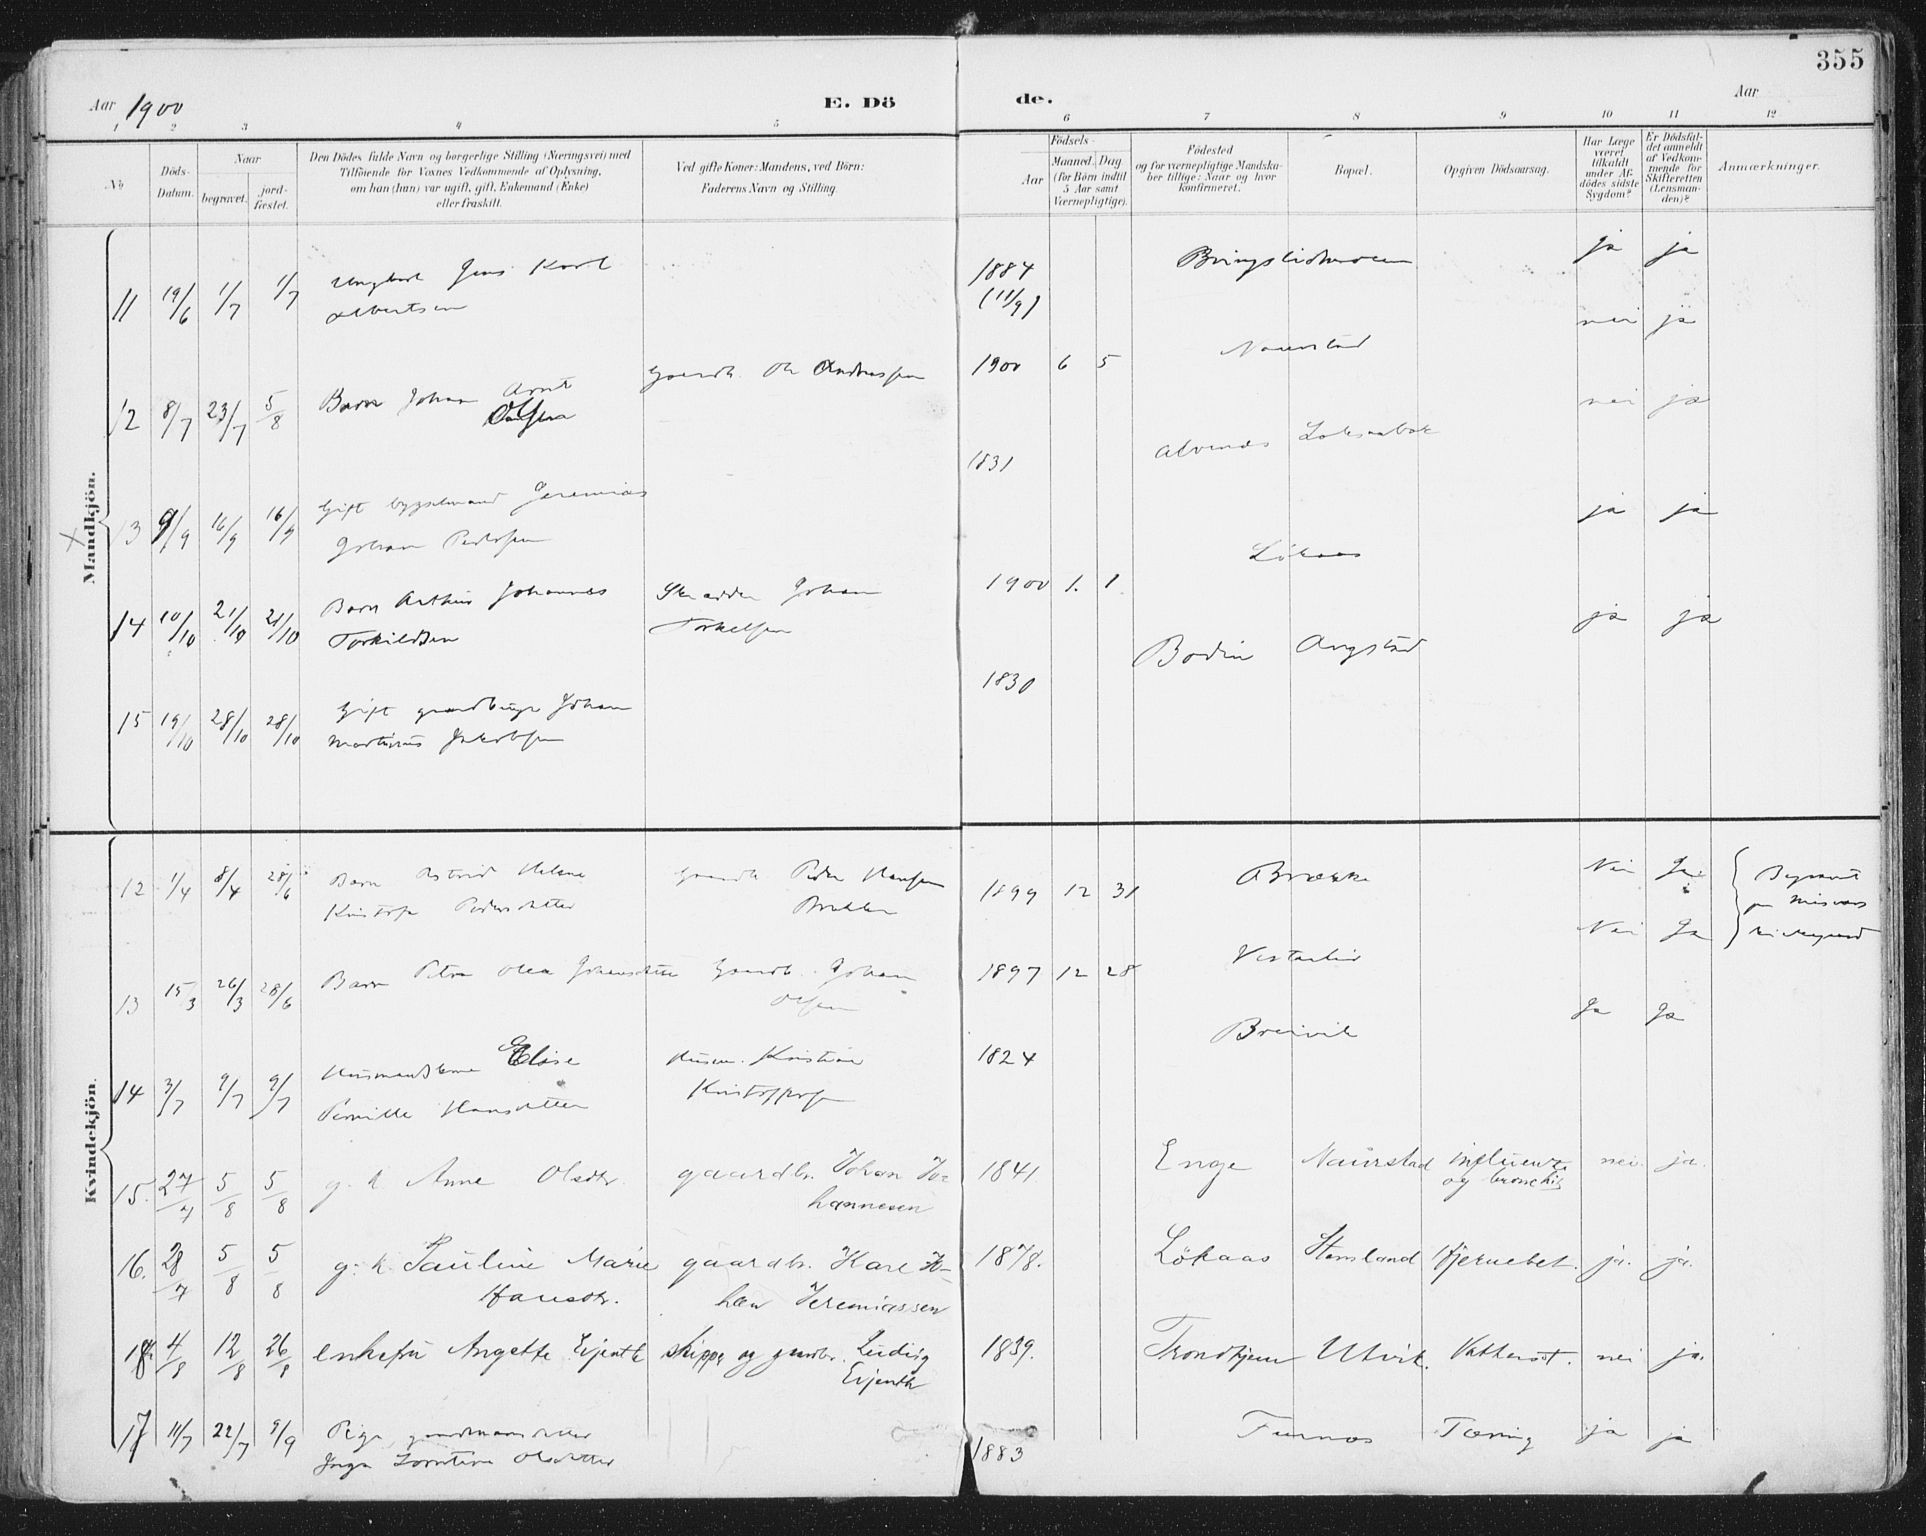 355
Aar 1900 E. Dö de. Aar
1 2 3 4 5 6 7 8 9 10 11 12
No
Döds-Datum.
Naar
begravet.
jord-fæstet.
Den Dödes fulde Navn og borgerlige Stilling (Næringsvei) med
Tilföiende for Voxnes Vedkommende af Oplysning,
om han (hun) var ugift, gift, Enkemand (Enke)
eller fraskilt.
Ved gifte Koner: Mandens, ved Börn:
Faderens Navn og Stilling.
Födsels-
Aar
Maaned.
Dag
(for Börn indtil
5 Aar samt
Værnepligtige).
Födested
og for værnepligtige Mandska-
ber tillige: Naar og hvor
konfirmeret.
Bopæl.
Opgiven Dödsaarsag.
Har Læge
været
tilkaldt
under Af-
dödes sidste
Sygdom?
Er Dödsfal-
det anmeldt
af Vedkom-
mende for
Skifteretten
(Lensman-
den)?
Anmærkninger.
Mandkjön.
11 19/6 1/7 1/7 Ungkarl Jens Karl 1884 ja ja
Albertsen (11/9)
12 8/7 23/7 5/8 Barn Johan Arnt Gaardb. Ole Andreassen 1900 6 5 Naurstad nei ja
Olsen
13 9/9 16/9 16/9 Gift bygselmand Jeremias 1831 Alvenes nei ja
Johan Pedersen
14 10/10 21/10 21/10 Barn Arthur Johannes Skrædder Johan 1900 1. 1. Løkaas ja ja
Torkildsen Torkelsen
15 19/10 28/10 28/10 Gift gaardbruger Johan 1830 Bodin Aagstad ja ja
Martinus Jakobsen
Kvindekjön.
12 1/4 8/4 28/6 Barn Astrid Helene Gaardb. Peder Hansen 1899 12 31 Brække Nei Ja Begravet
Kristofa Pedersdatter Brække paa Misvær
13 15/3 26/3 28/6 Barn Petra Olea Johansdatter Gaardb. Johan 1897 12 28 Vesterli Nei Ja
Olsen
14 3/7 9/7 9/7 Husmandskone Elise Husm. Kristian 1824 Breivik Ja Ja
Pernille Hansdatter Kristoffersen
15. 27/7 5/8 5/8 g. k. Anne Olsdtr. gaardbr. Johan Jo- 1841. Enge Naurstad influenza nei. ja.
hannesen og bronchit
16. 28/7 5/8 5/8 g. k. Pauline Marie gaardbr. Karl Jo- 1878. Lökaas Stemland Hjernebet. ja. ja.
Hansdtr. han Jeremiassen
18. 4/8 12/8 26/8 enkefru Angette Ejenth skipper og gaardbr. Ludvig 1839. Trondhjem Utvik. nei ja.
Ejenth
17 11/7 22/7 9/9 Pige, gaardmansdatter 1883 Furnes Tæring ja ja
Inga Lorntine Olsdatter